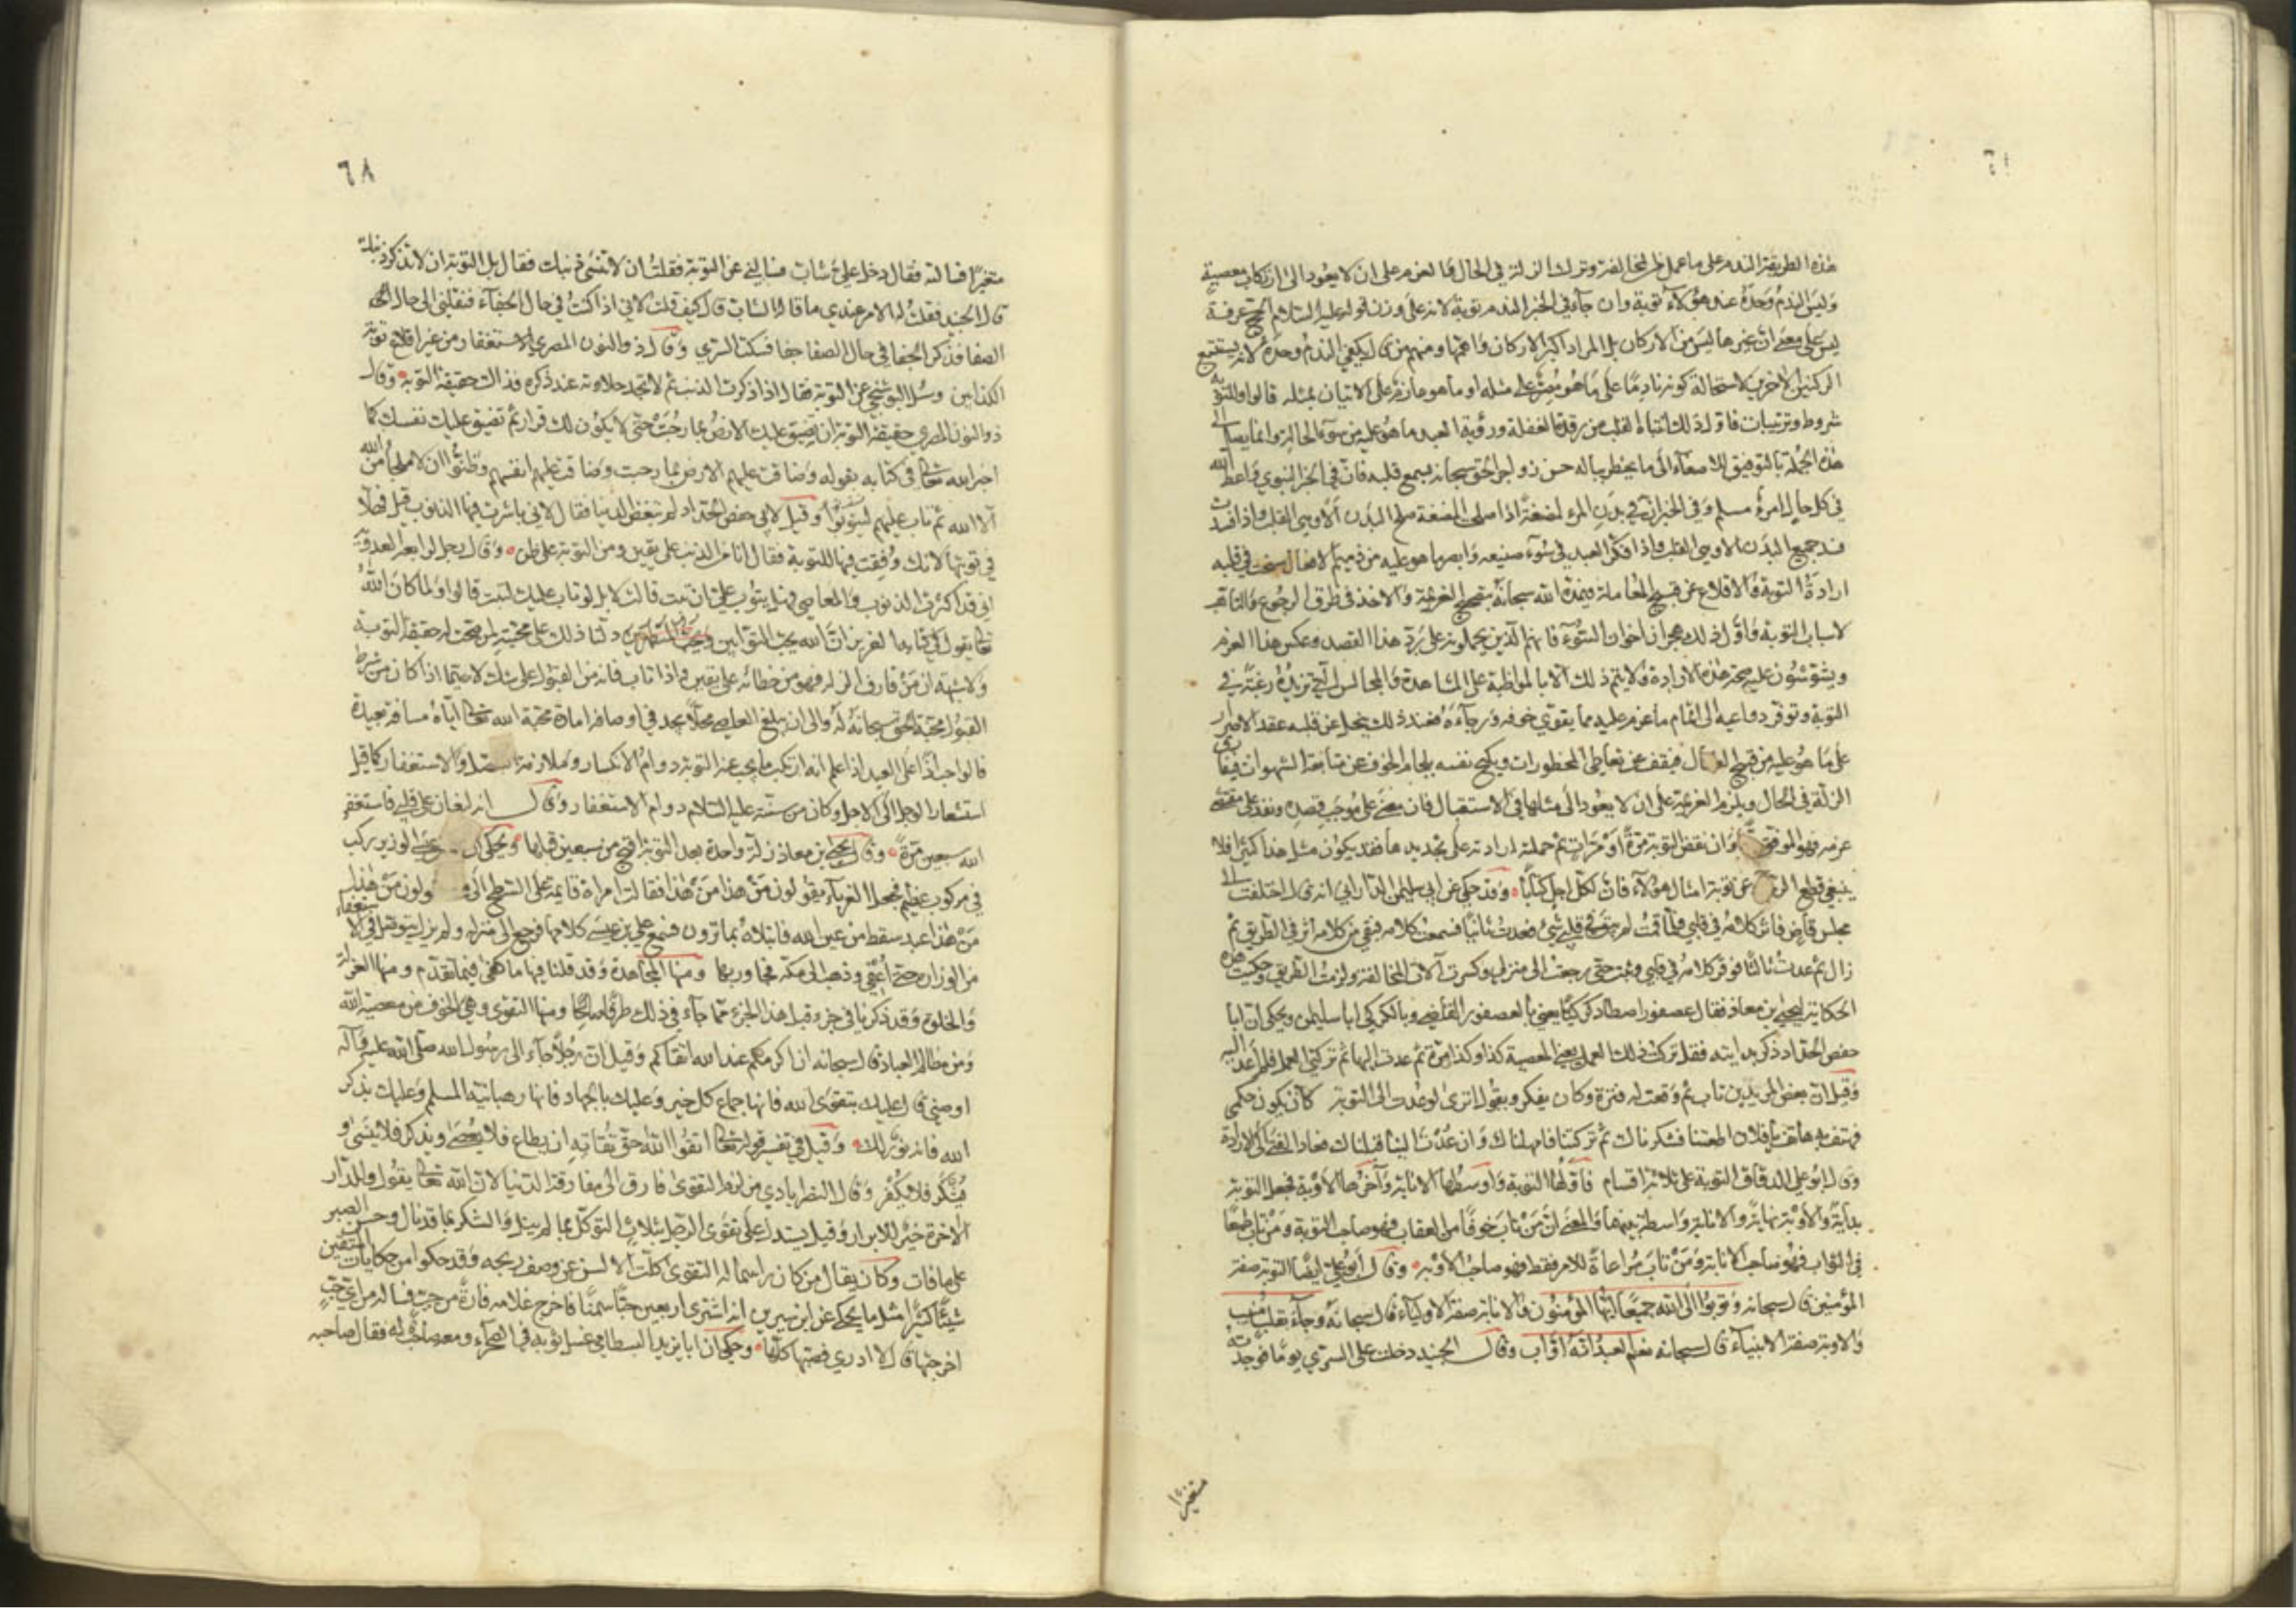 هذه الطريقة الندم على ما عمل من المخالفة وترك الزلة في الحال والعزم على ان لا يعود الى ارتكاب معصية
وليس الندم وحده عند هؤلاء توبة وان جاء في الخبر الندم توبة لانه على وزن قوله عليه السلام الحج عرفة
ليس على معنى ان غيرها ليس من الاركان بل المراد اكبر الاركان واعمها ومنهم من قال يكفي الندم وحده لانه يستتبع
الركنين الاخرين لاستحالة كونه نادما على ما هو مصر على مثله او ما هو عازم على الاتيان بمثله قالوا وللتوبة
شروط وترتيبات فاول ذلك انتباه القلب من رقدة الغفلة ورؤية العبد ما هو عليه من سوء الحالة وانما يصل الى
هذه الجملة بالتوفيق للاصغاء الى ما يخطر بباله من زواجر الحق سبحانه بسمع قلبه فان في الخبر النبوي واعظ الله
في كل حال امرئ مسلم وفي الخبر ان في بدن المرء لمضغة اذا صلحت المضغة صلح البدن الا وهي القلب واذا فسدت
فسد جميع البدن الا وهي القلب واذا فكر العبد في سوء صنيعه وابصر ما هو عليه من ذميم الافعال سنحت في قلبه
ارادة التوبة والاقلاع عن قبيح المعاملة فيمده الله سبحانه بتصحيح العزيمة والاخذ في طرق الرجوع والتاهب
لاسباب التوبة واول ذلك هجران اخوان السوء فانهم الذين يحملونه على رد هذا القصد وعكس هذا العزم
ويشوشون عليه صحة هذه الارادة ولا يتم ذلك الا بالمواظبة على المشاهدة والمجالس التي تزيده رغبة في
التوبة وتوفر دواعيه الى اتمام ما عزم عليه مما يقوي خوفه ورجاءه فعند ذلك ينحل عن قلبه عقد الاصرار
على ما هو عليه من قبيح ال ال فيقف عن تعاطي المحظورات ويكبح نفسه بلجام الخوف عن متابعة الشهوات فيفارق
الزلة في الحال ويلزم العزيمة على ان لا يعود الى مثلها في الاستقبال فان مضى على موجب قصده ونفذ على مقتضى
عزمه فهو الموفق وان نقض التوبة مرة او مرات ثم حملته ارادته على تجديدها فقد يكون مثل هذا كثيرا فلا
ينبغي قطع الر عن توبة امثال هؤلاء فان لكل اجل كتابا وقد حكي عن ابي سليمن الداراني انه قال اختلفت الى
مجلس قاص فاثر كلامه في قلبي فلما قمت لم يبق في قلبي شيء فعدت ثانيا فسمعت كلامه فبقي من كلامه اثر في الطريق ثم
زال ثم عدت ثالثا فوقر كلامه في قلبي حتى رجعت الى منزلي وكسرت آلات المخالفة ولزمت الطريق وحكيت هذه
الحكاية ليحيى بن معاذ فقال عصفور اصطاد كركيا يعني بالعصفور القاص وبالكركي ابا سليمن ويحكى ان ابا
حفص الحداد ذكر بدايته فقال تركت ذلك العمل يعني المعصية كذا وكذا مرة ثم عدت اليها ثم تركني العمل فلم اعد اليه
وقيل ان بعض المريدين تاب ثم وقعت له فترة وكان يفكر ويقول اترى لو عدت الى التوبة كان يكون حكمي
فهتف به هاتف يا فلان اطعتنا فشكرناك ثم تركتنا فامهلناك وان عدت الينا قبلناك فعاد الفتى الى الارادة
وقال ابو علي الدقاق التوبة على ثلاثة اقسام فاولها التوبة واوسطها الانابة وآخرها الاوبة فجعل التوبة
بداية والاوبة نهاية والانابة واسطة بينهما والمعنى ان من تاب خوفا من العقاب فهو صاحب التوبة ومن تاب طمعا
في الثواب فهو صاحب الانابة ومن تاب مراعاة للامر فقط فهو صاحب الاوبة وقال ابو علي ايضا التوبة صفة
المؤمنين قال سبحانه وتوبوا الى الله جميعا ايها المؤمنون والانابة صفة الاولياء قال سبحانه وجاء بقلب منيب
والاوبة صفة الانبياء قال سبحانه نعم العبد انه اواب وقال الجنيد دخلت على السري يوما فوجدته
متغيرا
٦٨
متغيرا فسالته فقال دخل علي شاب فسالني عن التوبة فقلت ان لا تنسى ذنبك فقال بل التوبة ان لا تذكر ذنبك
قال الجنيد فقلت له الامر عندي ما قال الشاب قال كيف قلت لاني اذا كنت في حال الجفاء فنقلني الى حال
الصفا فذكر الجفا في حال الصفا جفا فسكت السري وقال ذو النون المصري الاستغفار من غير اقلاع توبة
الكذابين وسئل البوشنجي عن التوبة فقال اذا ذكرت الذنب ثم لا تجد حلاوته عند ذكره فذاك حقيقة التوبة وقال
ذو النون المصري حقيقة التوبة ان تضيق عليك الارض بما رحبت حتى لا يكون لك قرار ثم تضيق عليك نفسك كما
اخبر الله تعالى في كتابه بقوله وضاقت عليهم الارض بما رحبت وضاقت عليهم انفسهم وظنوا ان لا ملجأ من الله
الا الله ثم تاب عليهم ليتوبوا وقيل لابي حفص الحداد لم تبغض الدنيا فقال لاني باشرت فيها الذنوب قيل فهلا
في توبتها لانك وفقت فيها للتوبة فقال انا من الذنب على يقين ومن التوبة على ظن وقال رجل لرابعة العدوية
اني قد اكثرت الذنوب والمعاصي فهل يتوب علي ان تبت قالت لا بل لو تاب عليك لتبت قالوا ولما كان الله
تعالى يقول في كتابه العزيز ان الله يحب التوابين ويحب المتطهرين دلنا ذلك على محبته لمن صحت له حقيقة التوبة
ولا شبهة ان من قارف الزلة فهو من خطائه على يقين واذا تاب فانه من القبول على شك لا سيما اذا كان من شرط
القبول محبة الحق سبحانه له والى ان يبلغ العاصي محلا يجد في اوصافه امارة محبة الله تعالى اياه مسافة بعيدة
قالوا على العبد اذا علم انه ارتكب ما يجب عنه التوبة دوام الانكسار وملازمة والاستغفار كما قيل
استشعار الوجل الى الاجل وكان من سنته عليه السلام دوام الاستغفار وقال انه ليغان على قلبي فاستغفر
الله سبعين مرة وقال يحيى بن معاذ زلة واحدة بعد التوبة اقبح من سبعين قبلها ويحكى ان عيسى الوزير ركب
في مركوب عظيم فجعل الغرباء يقولون من هذا من هذا فقالت امراة قائمة على السطح الى ولون من هذا
من هذا عبد سقط من عين الله فابتلاه بما ترون فسمع علي بن عيسى كلامها فرجع الى منزله ولم يزل يتوصل في الاستعفاء
من الوزارة حتى اعفي وذهب الى مكة فجاور بها ومنها المجاهدة وقد قلنا فيها ما يكفي فيما تقدم ومنها العزلة
والخلوة وقد ذكرنا في جزء قبل هذا الجزء مما جاء في ذلك طرفا صالحا ومنها التقوى وهي الخوف من معصية الله
ومن مظالم العباد قال سبحانه ان اكرمكم عند الله اتقاكم وقيل ان رجلا جاء الى رسول الله صلى الله عليه وآله
اوصني قال عليك بتقوى الله فانها جماع كل خير وعليك بالجهاد فانها رهبانية المسلم وعليك بذكر
الله فانه نور لك وقيل في تفسير قوله تعالى اتقوا الله حق تقاته ان يطاع فلا يعصى ويذكر فلا ينسى و
يشكر فلا يكفر وقال النصراباذي من لزم التقوى فارق الى مفارقة الدنيا لان الله تعالى يقول وللدار
الآخرة خير للابرار وقيل يستدل على تقوى الرجل بثلاث التوكل بما لم ينل والشكر بما قد نال وحسن الصبر
على ما فات وكان يقال من كان راسماله التقوى كلت الالسن عن وصف ربحه وقد حكوا من حكايات المتقين
شيئا كثيرا مثل ما يحكى عن ابن سيرين انه اشترى اربعين حبا سمنا فاخرج غلامه فارة من حب فساله من اي حب
اخرجتها قال لا ادري فصبها كلها وحكي ان ابا يزيد البسطامي غسل ثوبه في الصحراء ومعه صاحب له فقال صاحبه